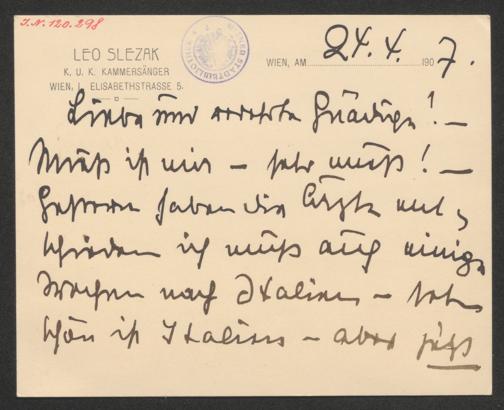 I.N. 120.298
LEO SLEZAK
K. U. K. KAMMERSÄNGER
WIEN, I. ELISABETHSTRASSE 5.
WIEN, AM 24.4. 1907.
Liebe und verehrte Gnädige! –
Mieß ist mir – sehr mieß! –
Gestern haben die Ärzte ent-
schieden ich muß auf einige
Wochen nach Italien – sehr
schön ist Italien – aber jetzt